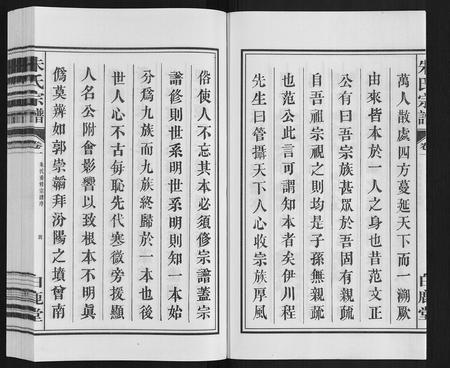 朱氏宗譜
卷一
白鹿堂
萬人散處四方蔓延天下而一溯厥
由來皆本於一人之身也昔范文正
公有曰吾宗族甚眾於吾固有親疏
自吾祖宗視之則均是子孫無親疏
也范公此言可謂知本者矣伊川程
先生曰管攝天下人心收宗族厚風
俗使人不忘其本必須修宗譜蓋宗
譜修則世系明世系明則知一本始
分爲九族而九族終歸於一本也後
世人心不古每恥先代寒微旁援顯
人名公附會影響以致根本不明真
僞莫辨如郭崇韜拜汾陽之墳曾南
朱氏宗譜
卷
朱氏重修宗譜序
白鹿堂